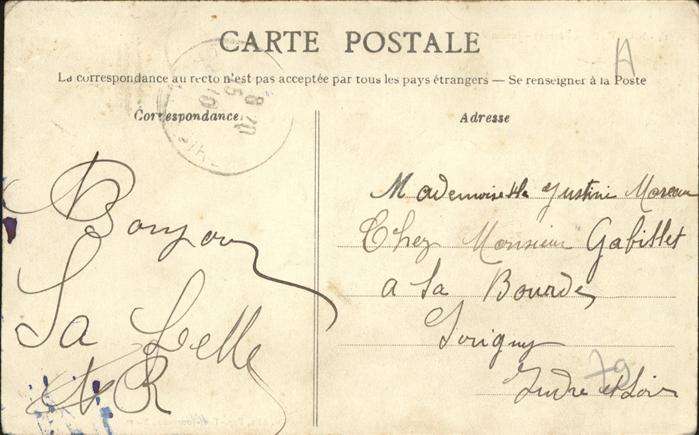 CARTE POSTALE
La correspondance au recto n'est pas acceptée par tous les pays étrangers — Se renseigner à la Poste
Correspondance
Adresse
Bonjour
La Belle
Mademoiselle Justine Moreau
Chez Monsieur Gabillet
a la Bourde
Sorigny
Indre et Loir
A
79